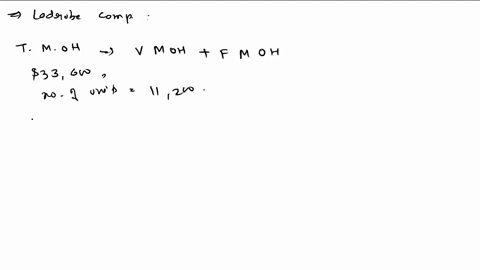 => Lodrobe comp :
T. M.OH -> V MOH + F MOH
$33,600,
no. of units = 11,200.